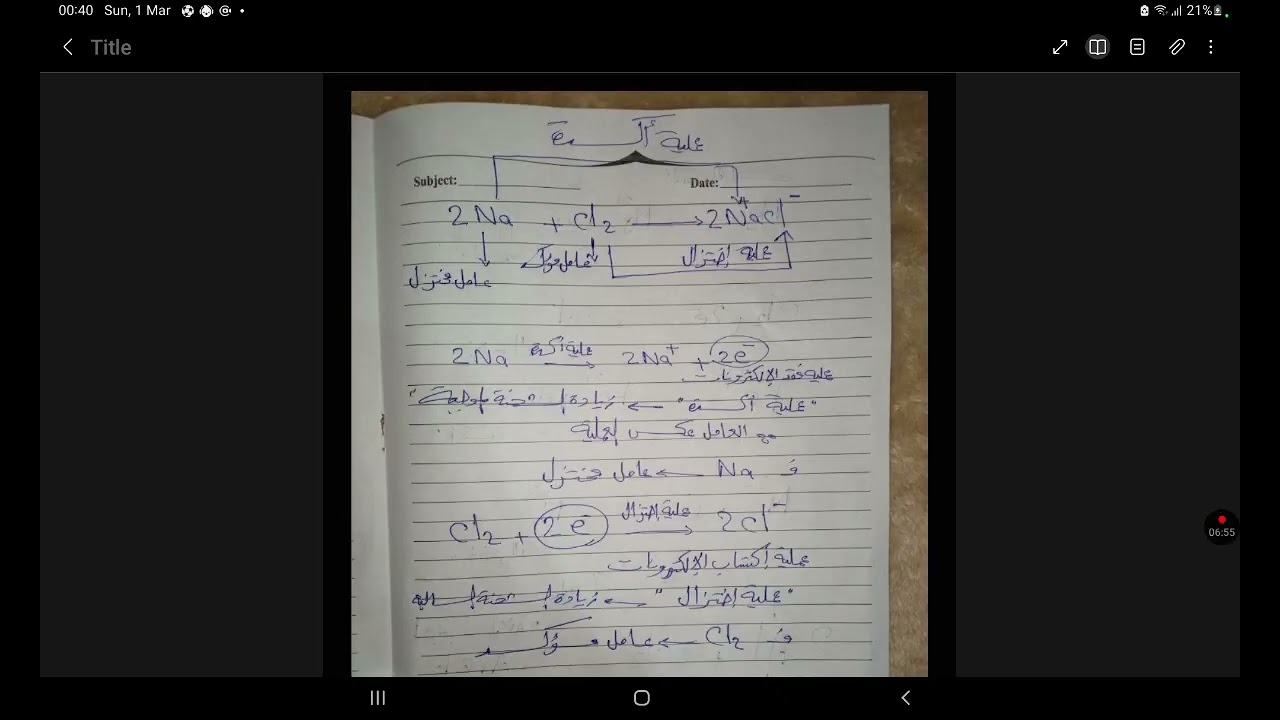 00:40 Sun, 1 Mar
21%
Title
عملية أكسدة
Subject: Date:
2Na + Cl₂ → 2Na⁺Cl⁻
عامل مؤكسد عملية إختزال
عامل مختزل
2Na عملية أكسدة → 2Na⁺ + 2e⁻
عملية فقد الإلكترونات
"عملية أكسدة" ← زيادة الشحنة الموجبة"
العامل عكس العملية
فـ Na ← عامل مختزل
Cl₂ + 2e⁻ عملية إختزال → 2Cl⁻
عملية أكتساب الإلكترونات
"عملية إختزال" ← زيادة الشحنة السالبة
فـ Cl₂ ← عامل مؤكسد
06:55